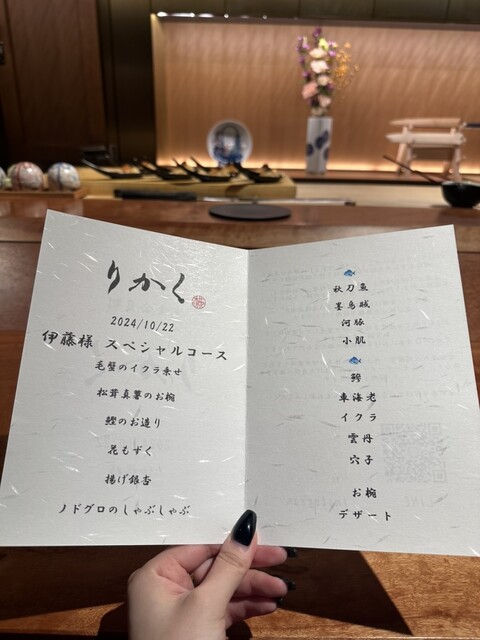 りかく
2024/10/22
伊藤様 スペシャルコース
毛蟹のイクラ乗せ
松茸真薯のお椀
鰹のお造り
花もずく
揚げ銀杏
ノドグロのしゃぶしゃぶ
秋刀魚
墨烏賊
河豚
小肌
鯵
車海老
イクラ
雲丹
穴子
お椀
デザート